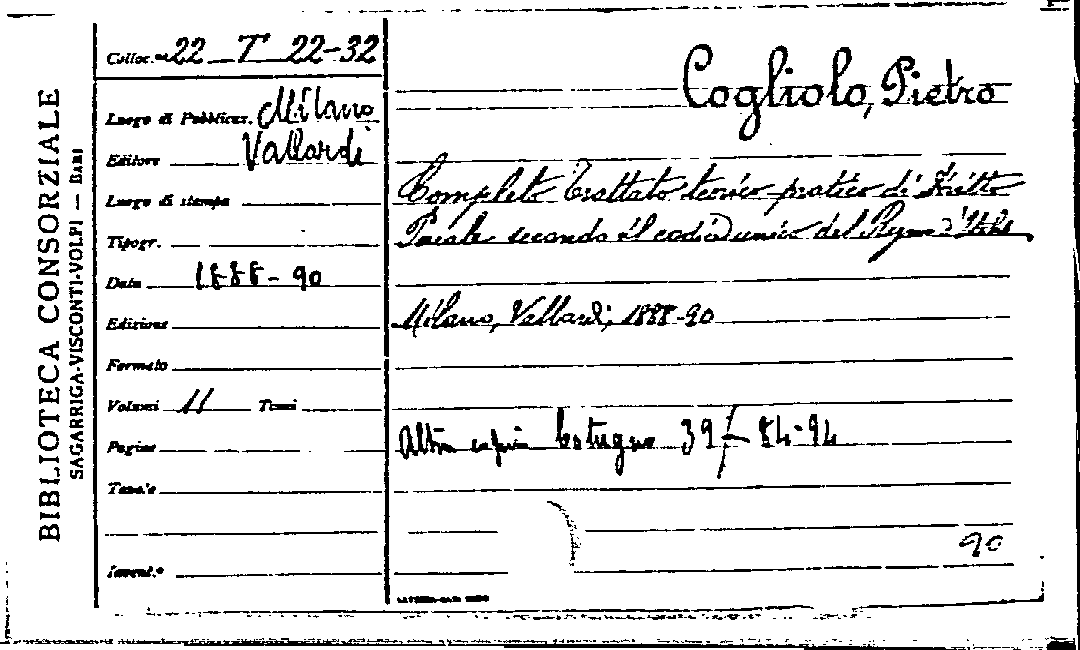 BIBLIOTECA CONSORZIALE
SAGARRIGA-VISCONTI-VOLPI — BARI
Colloc.ne 22 T 22-32
Luogo di Pubblicaz. Milano
Editore Vallardi
Luogo di stampa
Tipogr.
Data 1888-90
Edizione
Formato
Volumi 11 Tomi
Pagine
Tavole
Invent.°
Cogliolo, Pietro
Completo Trattato teorico pratico di Diritto
Penale secondo il codice unico del Regno d'Italia
Milano, Vallardi, 1888-90
Altra copia Cotugno 39 f 84-94
90